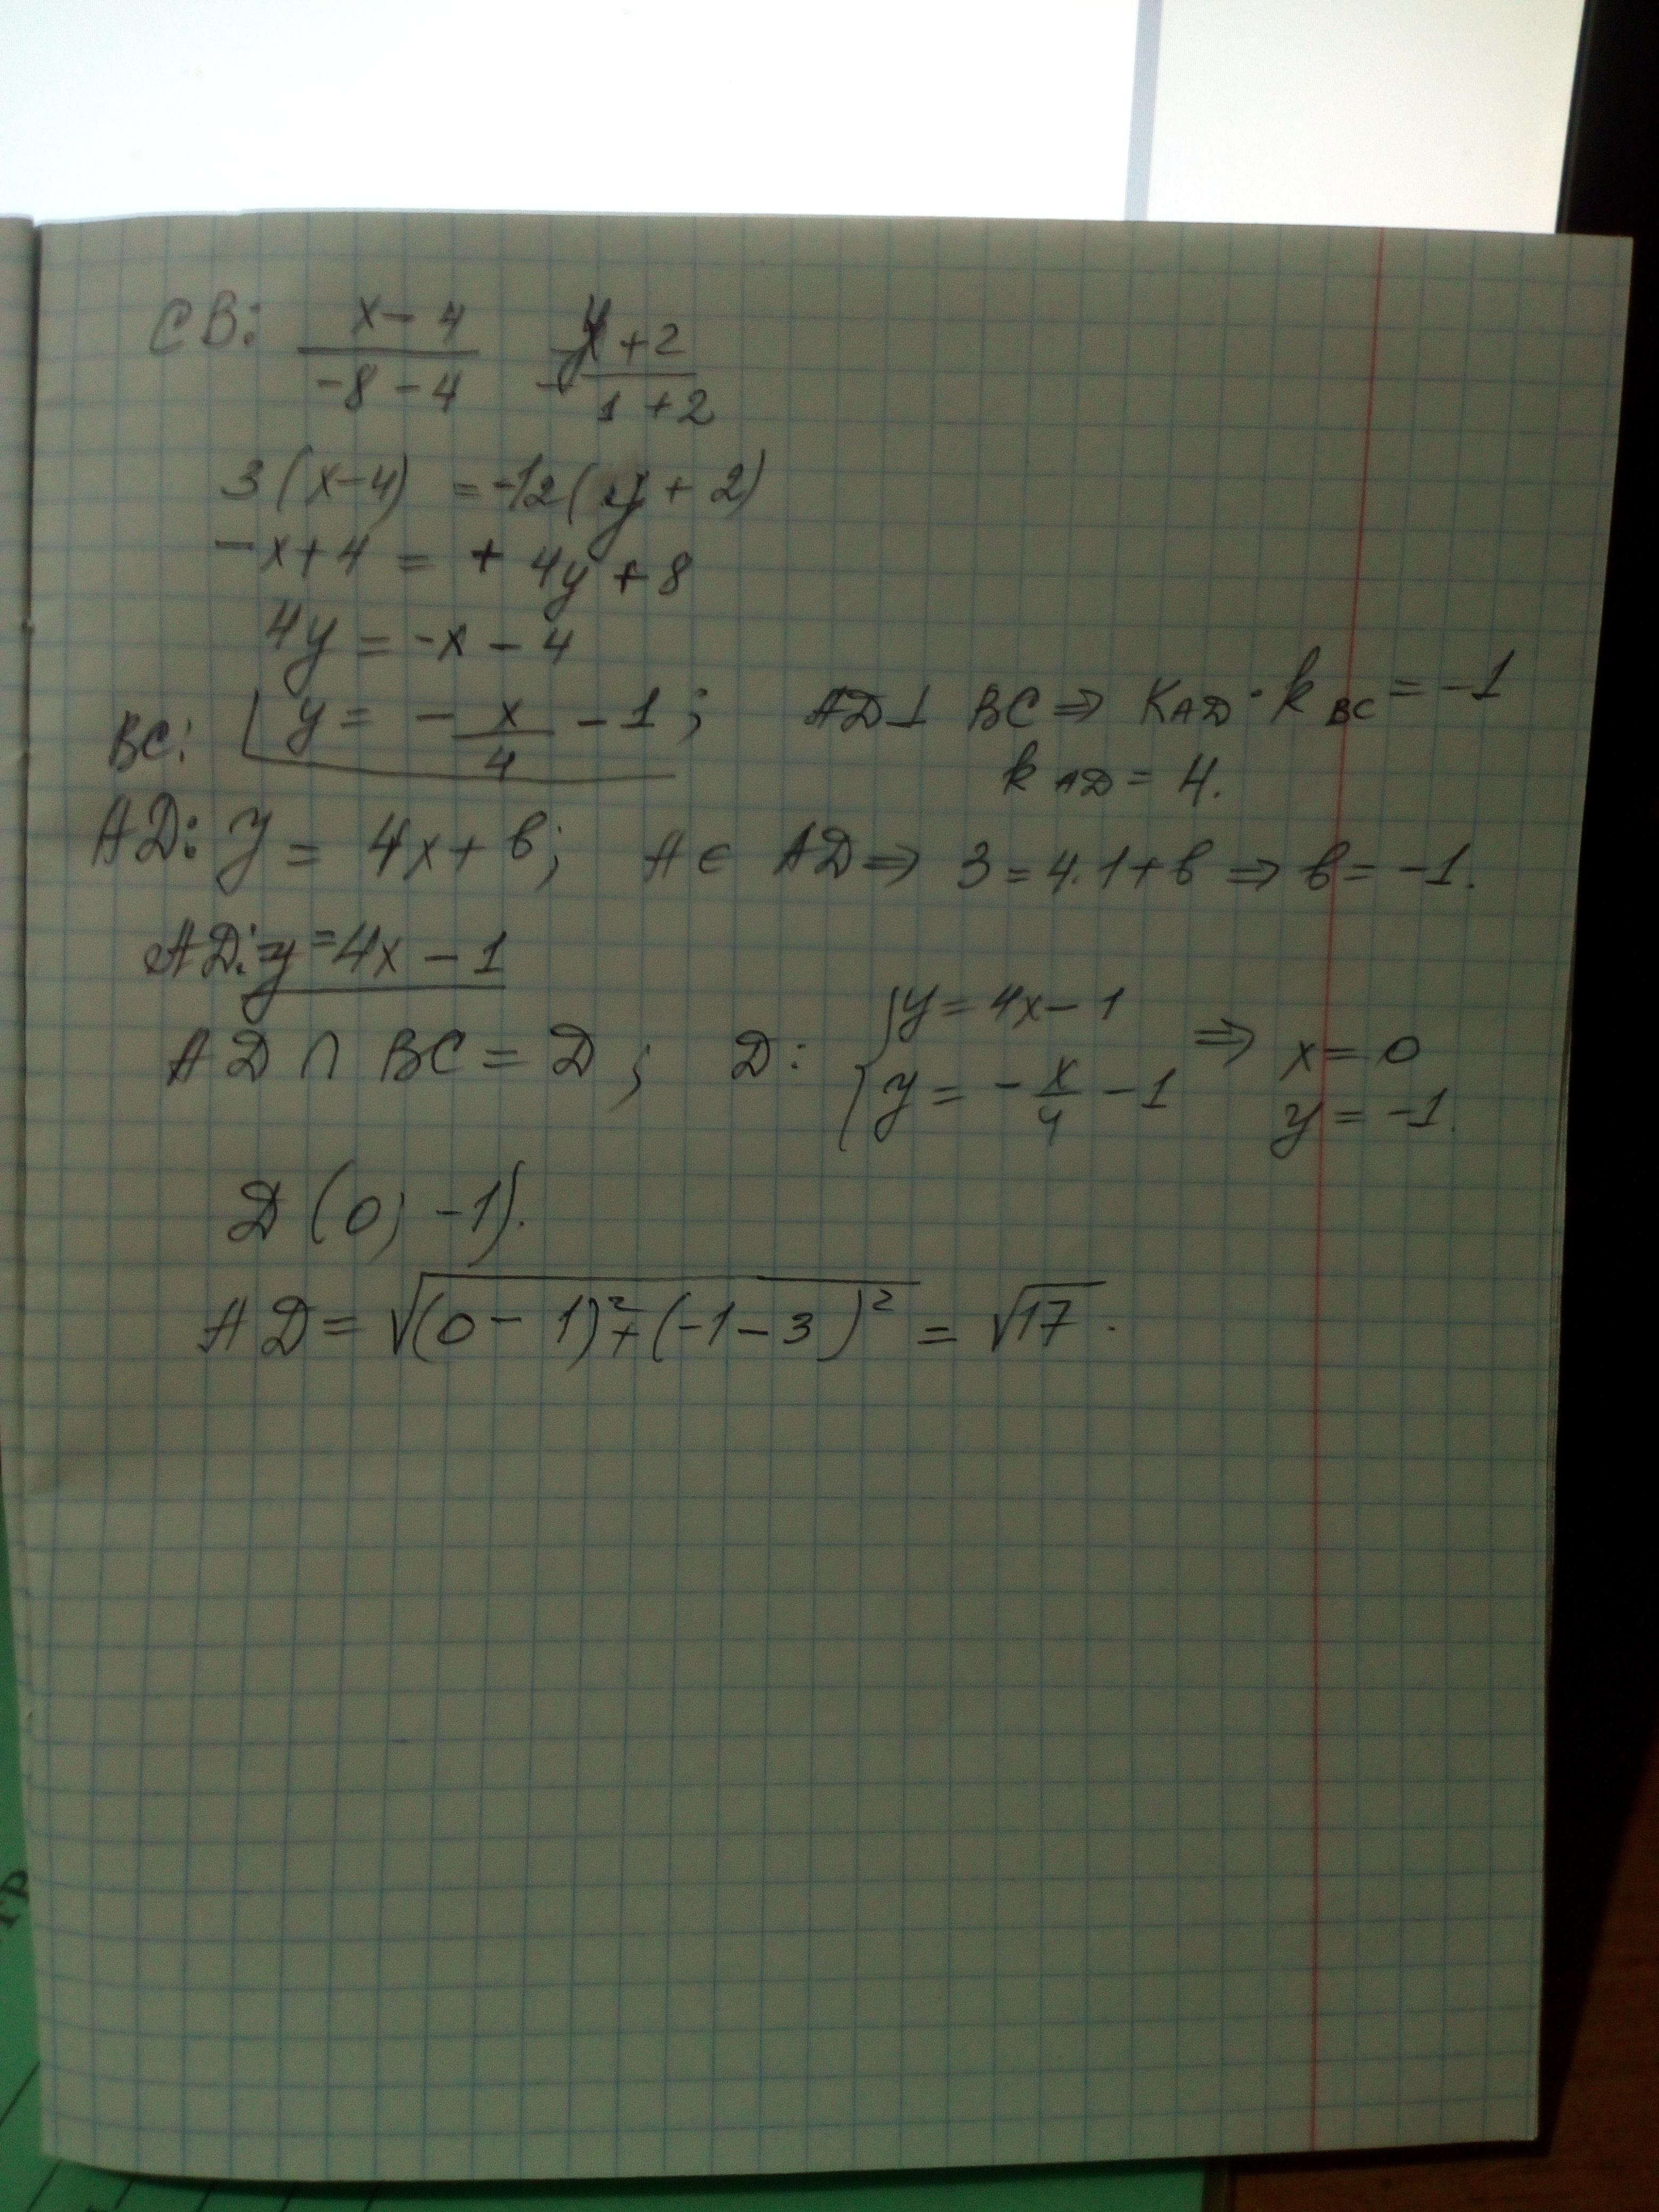 CB: (x-4)/(-8-4) = (y+2)/(1+2)
3(x-4) = -12(y+2)
-x+4 = +4y+8
4y = -x-4
BC: y = -x/4 - 1; AD⊥ BC ⇒ K_AD · k_BC = -1
k_AD = 4.
AD: y = 4x+b; A∈ AD ⇒ 3=4.1+b ⇒ b= -1.
AD: y=4x-1
AD ∩ BC = D; D: {y=4x-1 y=-x/4-1 ⇒ x=0 y=-1.
D(0; -1).
AD = √((0-1)²+(-1-3)²) = √17.